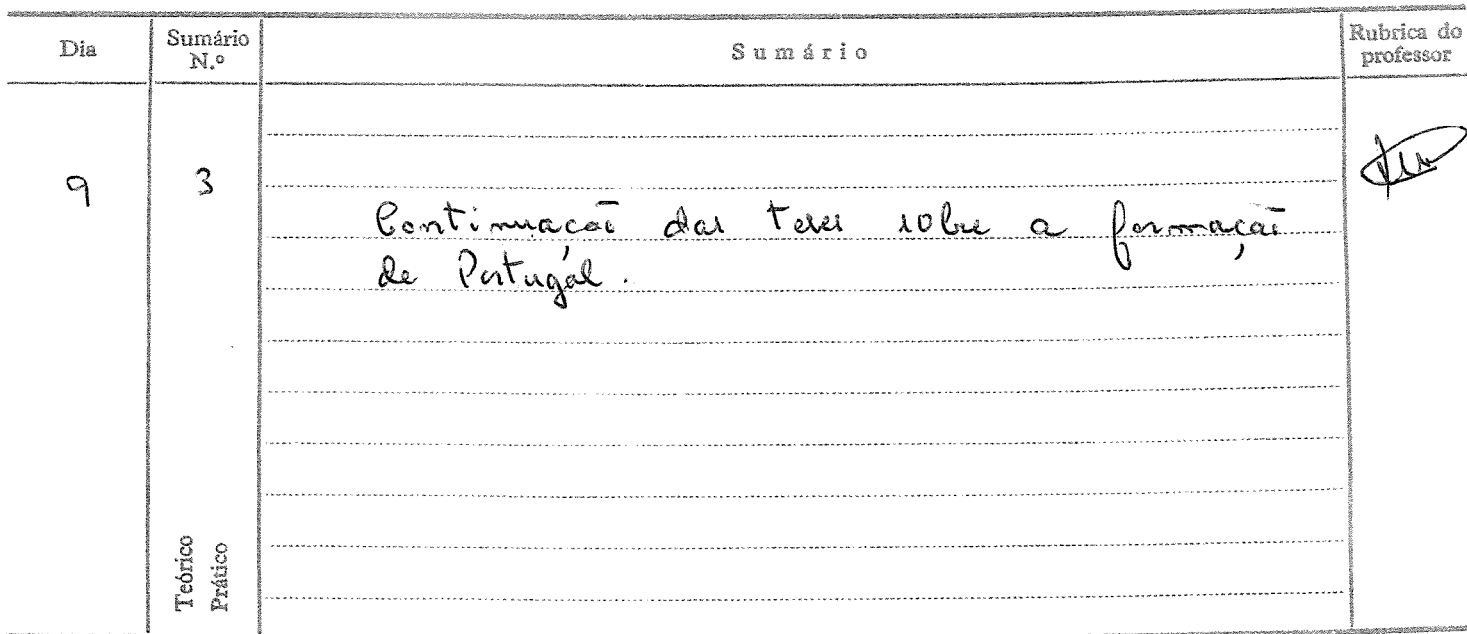 Dia
Sumário
N.º
Sumário
Rubrica do
professor
9
3
Continuação das teses sobre a formação
de Portugal.
Teórico
Prático